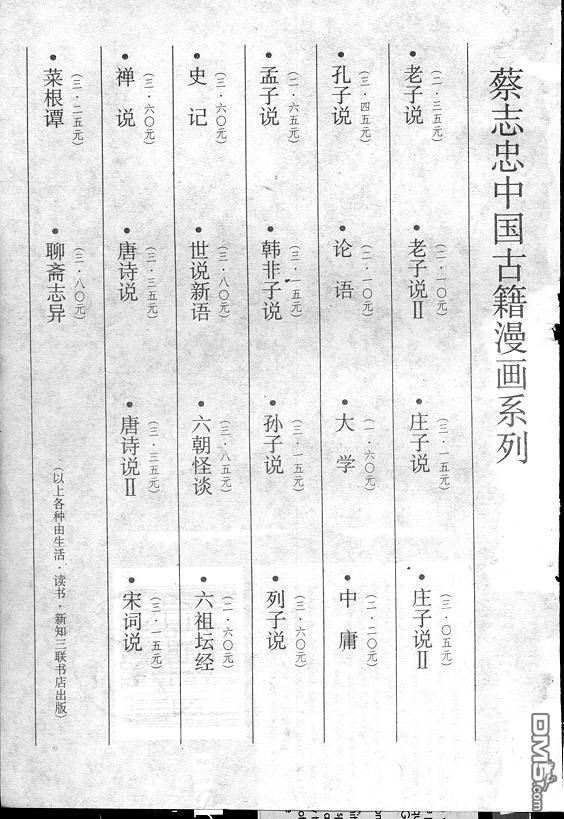 蔡志忠中国古籍漫画系列
•老子说(二·三五元)
•老子说Ⅱ(二·一〇元)
•庄子说(三·一五元)
•庄子说Ⅱ(三·〇五元)
•孔子说(三·四五元)
•论语(二·一〇元)
•大学(一·六〇元)
•中庸(二·二〇元)
•孟子说(二·六五元)
•韩非子说(三·一五元)
•孙子说(三·一五元)
•列子说(三·六〇元)
•史记(二·六〇元)
•世说新语(三·八〇元)
•六朝怪谈(三·八五元)
•六祖坛经(二·六〇元)
•禅说(二·六〇元)
•唐诗说(三·三五元)
•唐诗说Ⅱ(三·三五元)
•宋词说(三·一五元)
•菜根谭(三·二五元)
•聊斋志异(三·八〇元)
(以上各种由生活·读书·新知三联书店出版)
DM5.com